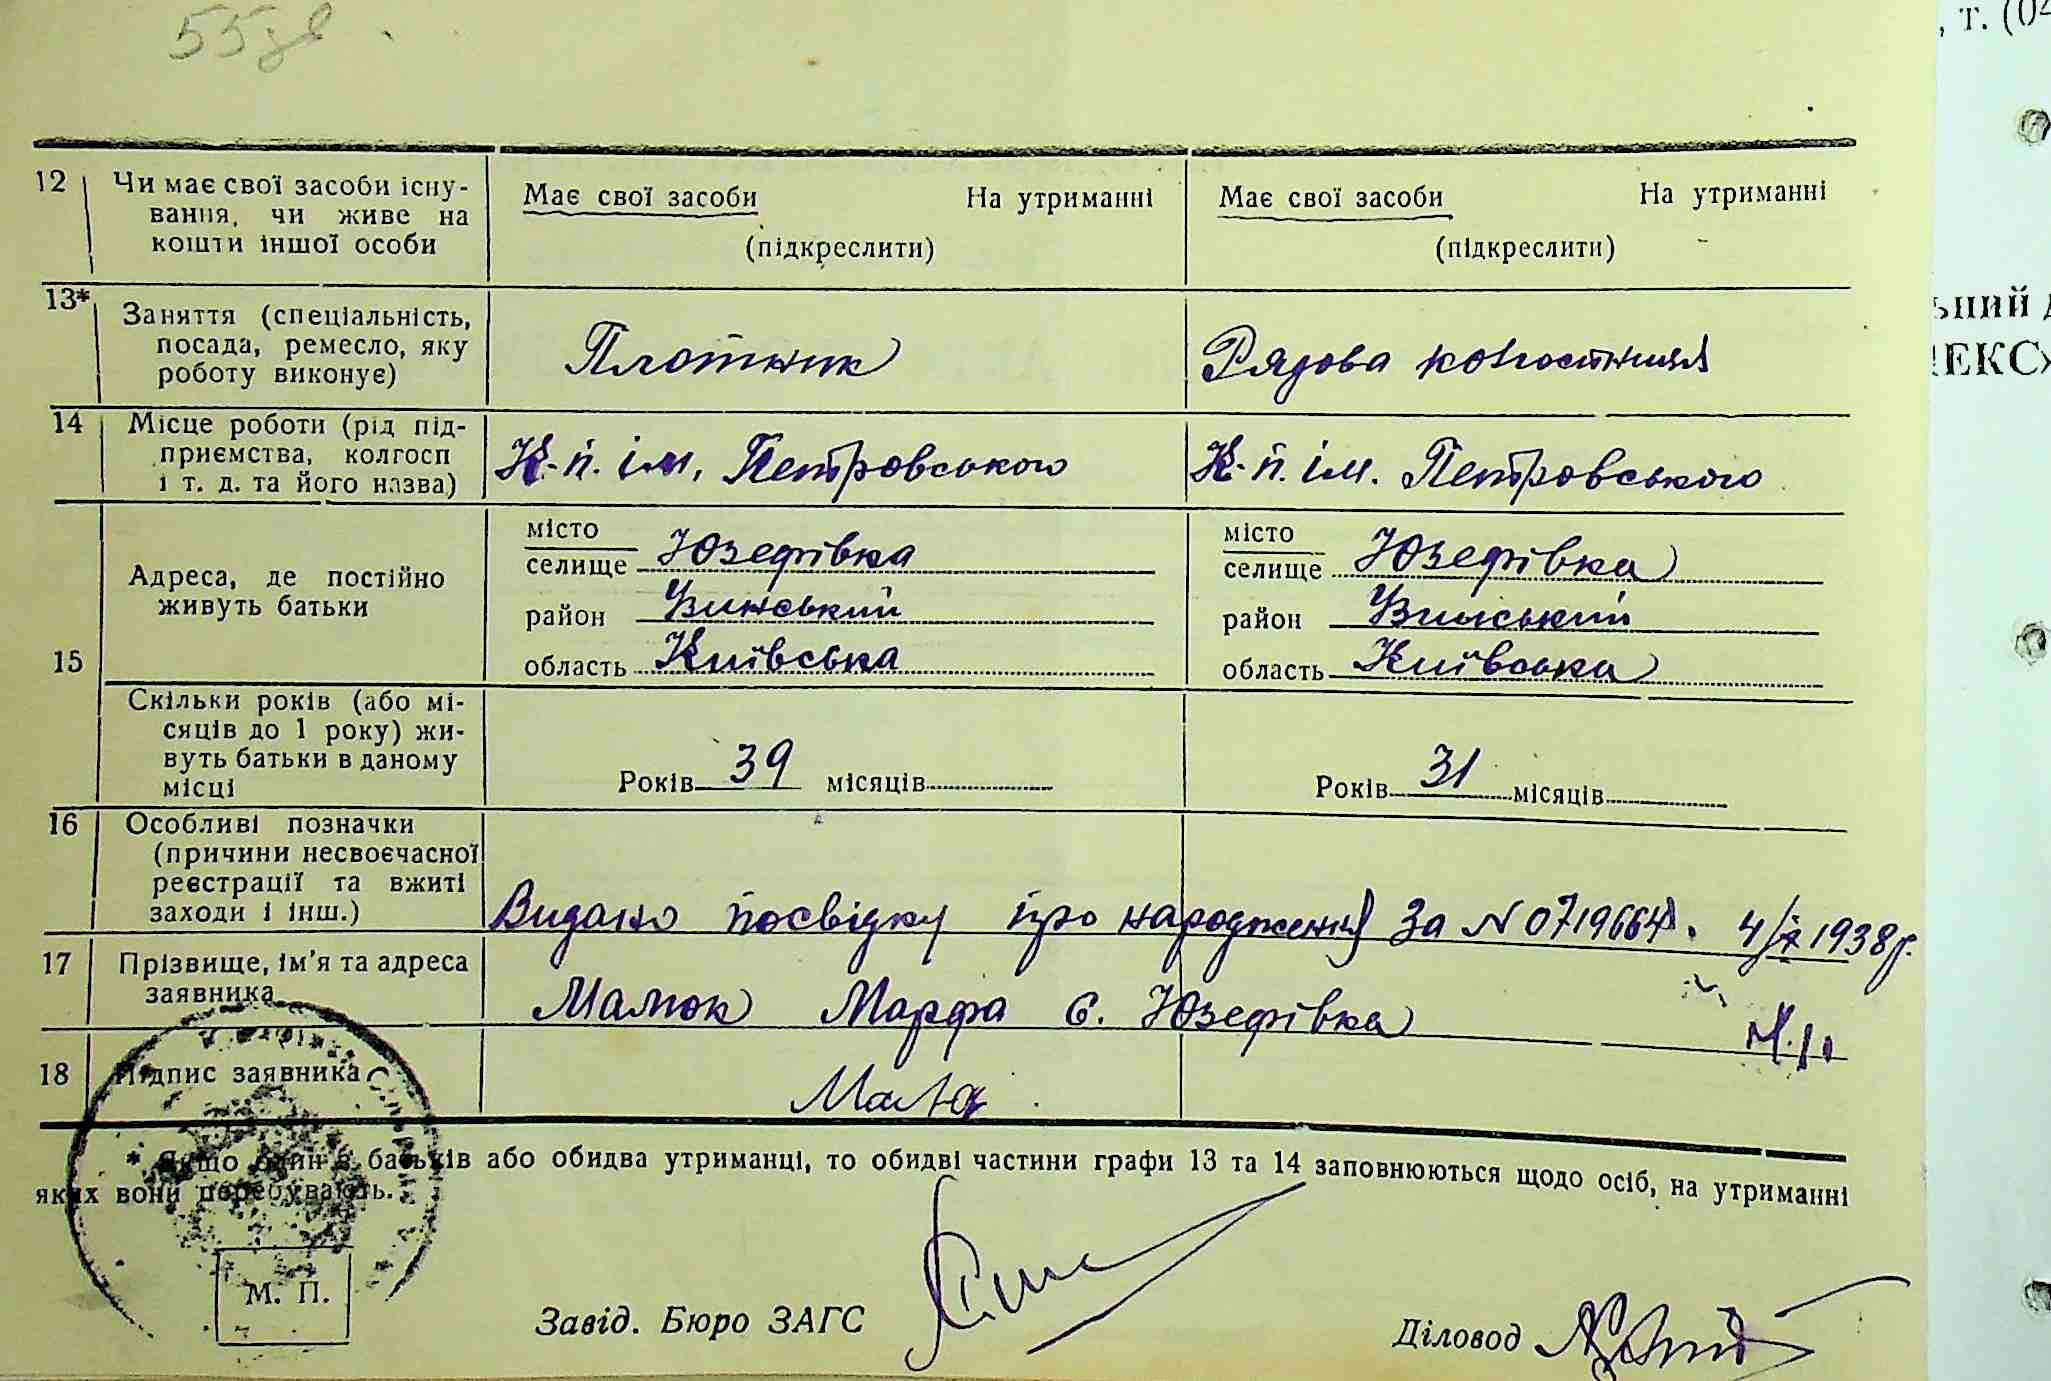 55зв
, т. (04
12 Чи має свої засоби існу-
вання, чи живе на
кошти іншої особи
Має свої засоби На утриманні
(підкреслити)
Має свої засоби На утриманні
(підкреслити)
13* Заняття (спеціальність,
посада, ремесло, яку
роботу виконує)
Плотник
Рядова колгостниця
ьний д
ЛЕКС»
14 Місце роботи (рід під-
приємства, колгосп
і т. д. та його назва)
К-п. ім. Петровського
К-п. ім. Петровського
15 Адреса, де постійно
живуть батьки
місто
селище Юзефівка
район
область Київська
місто
селище Юзефівка
район
область Київська
Скільки років (або мі-
сяців до 1 року) жи-
вуть батьки в даному
місці
Років 39 місяців
Років 31 місяців
16 Особливі позначки
(причини несвоєчасної
реєстрації та вжиті
заходи і інш.)
Видано посвідку про народження За № 0719664. 4/ 1938р.
17 Прізвище, ім'я та адреса
заявника
Малюк Марфа с. Юзефівка
18 Підпис заявника
* Якщо один з батьків або обидва утриманці, то обидві частини графи 13 та 14 заповнюються щодо осіб, на утриманні
яких вони перебувають.
М. П.
Завід. Бюро ЗАГС
Діловод